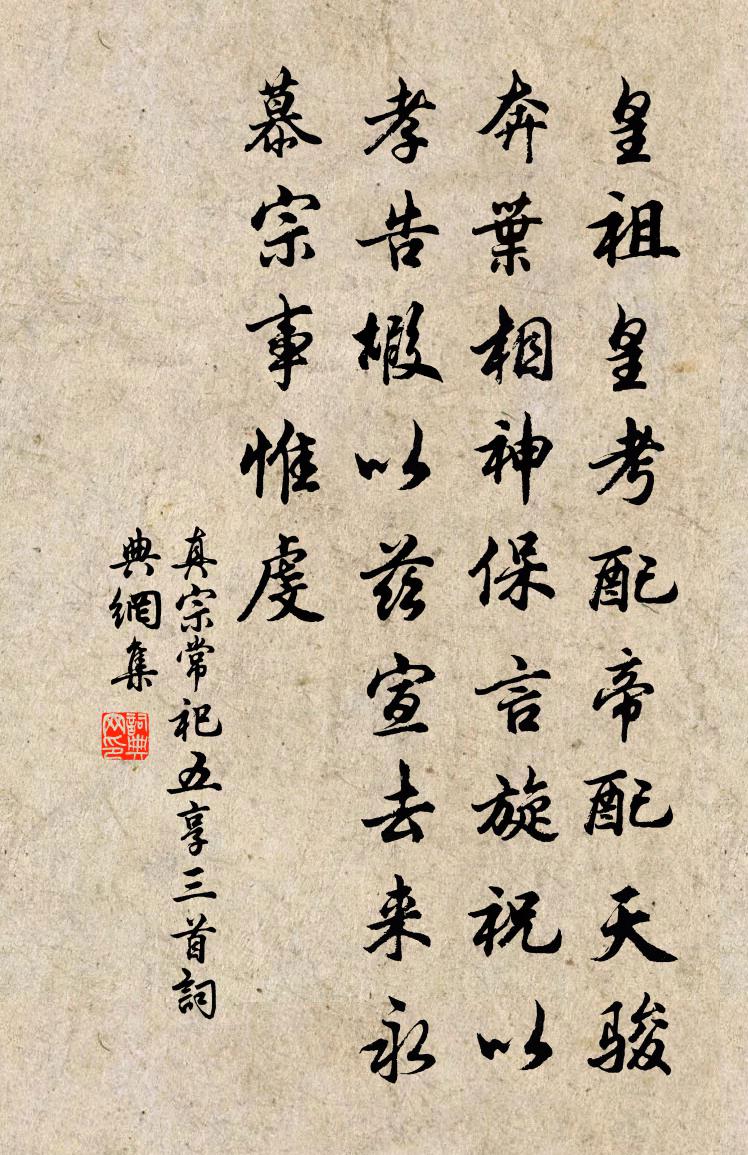 皇祖皇考配帝配天駿
奔葉相神保言旋祝以
孝告嘏以慈宣去来永
慕宗事惟虔
真宗常祀五享三首詞
典網集
詞典網印